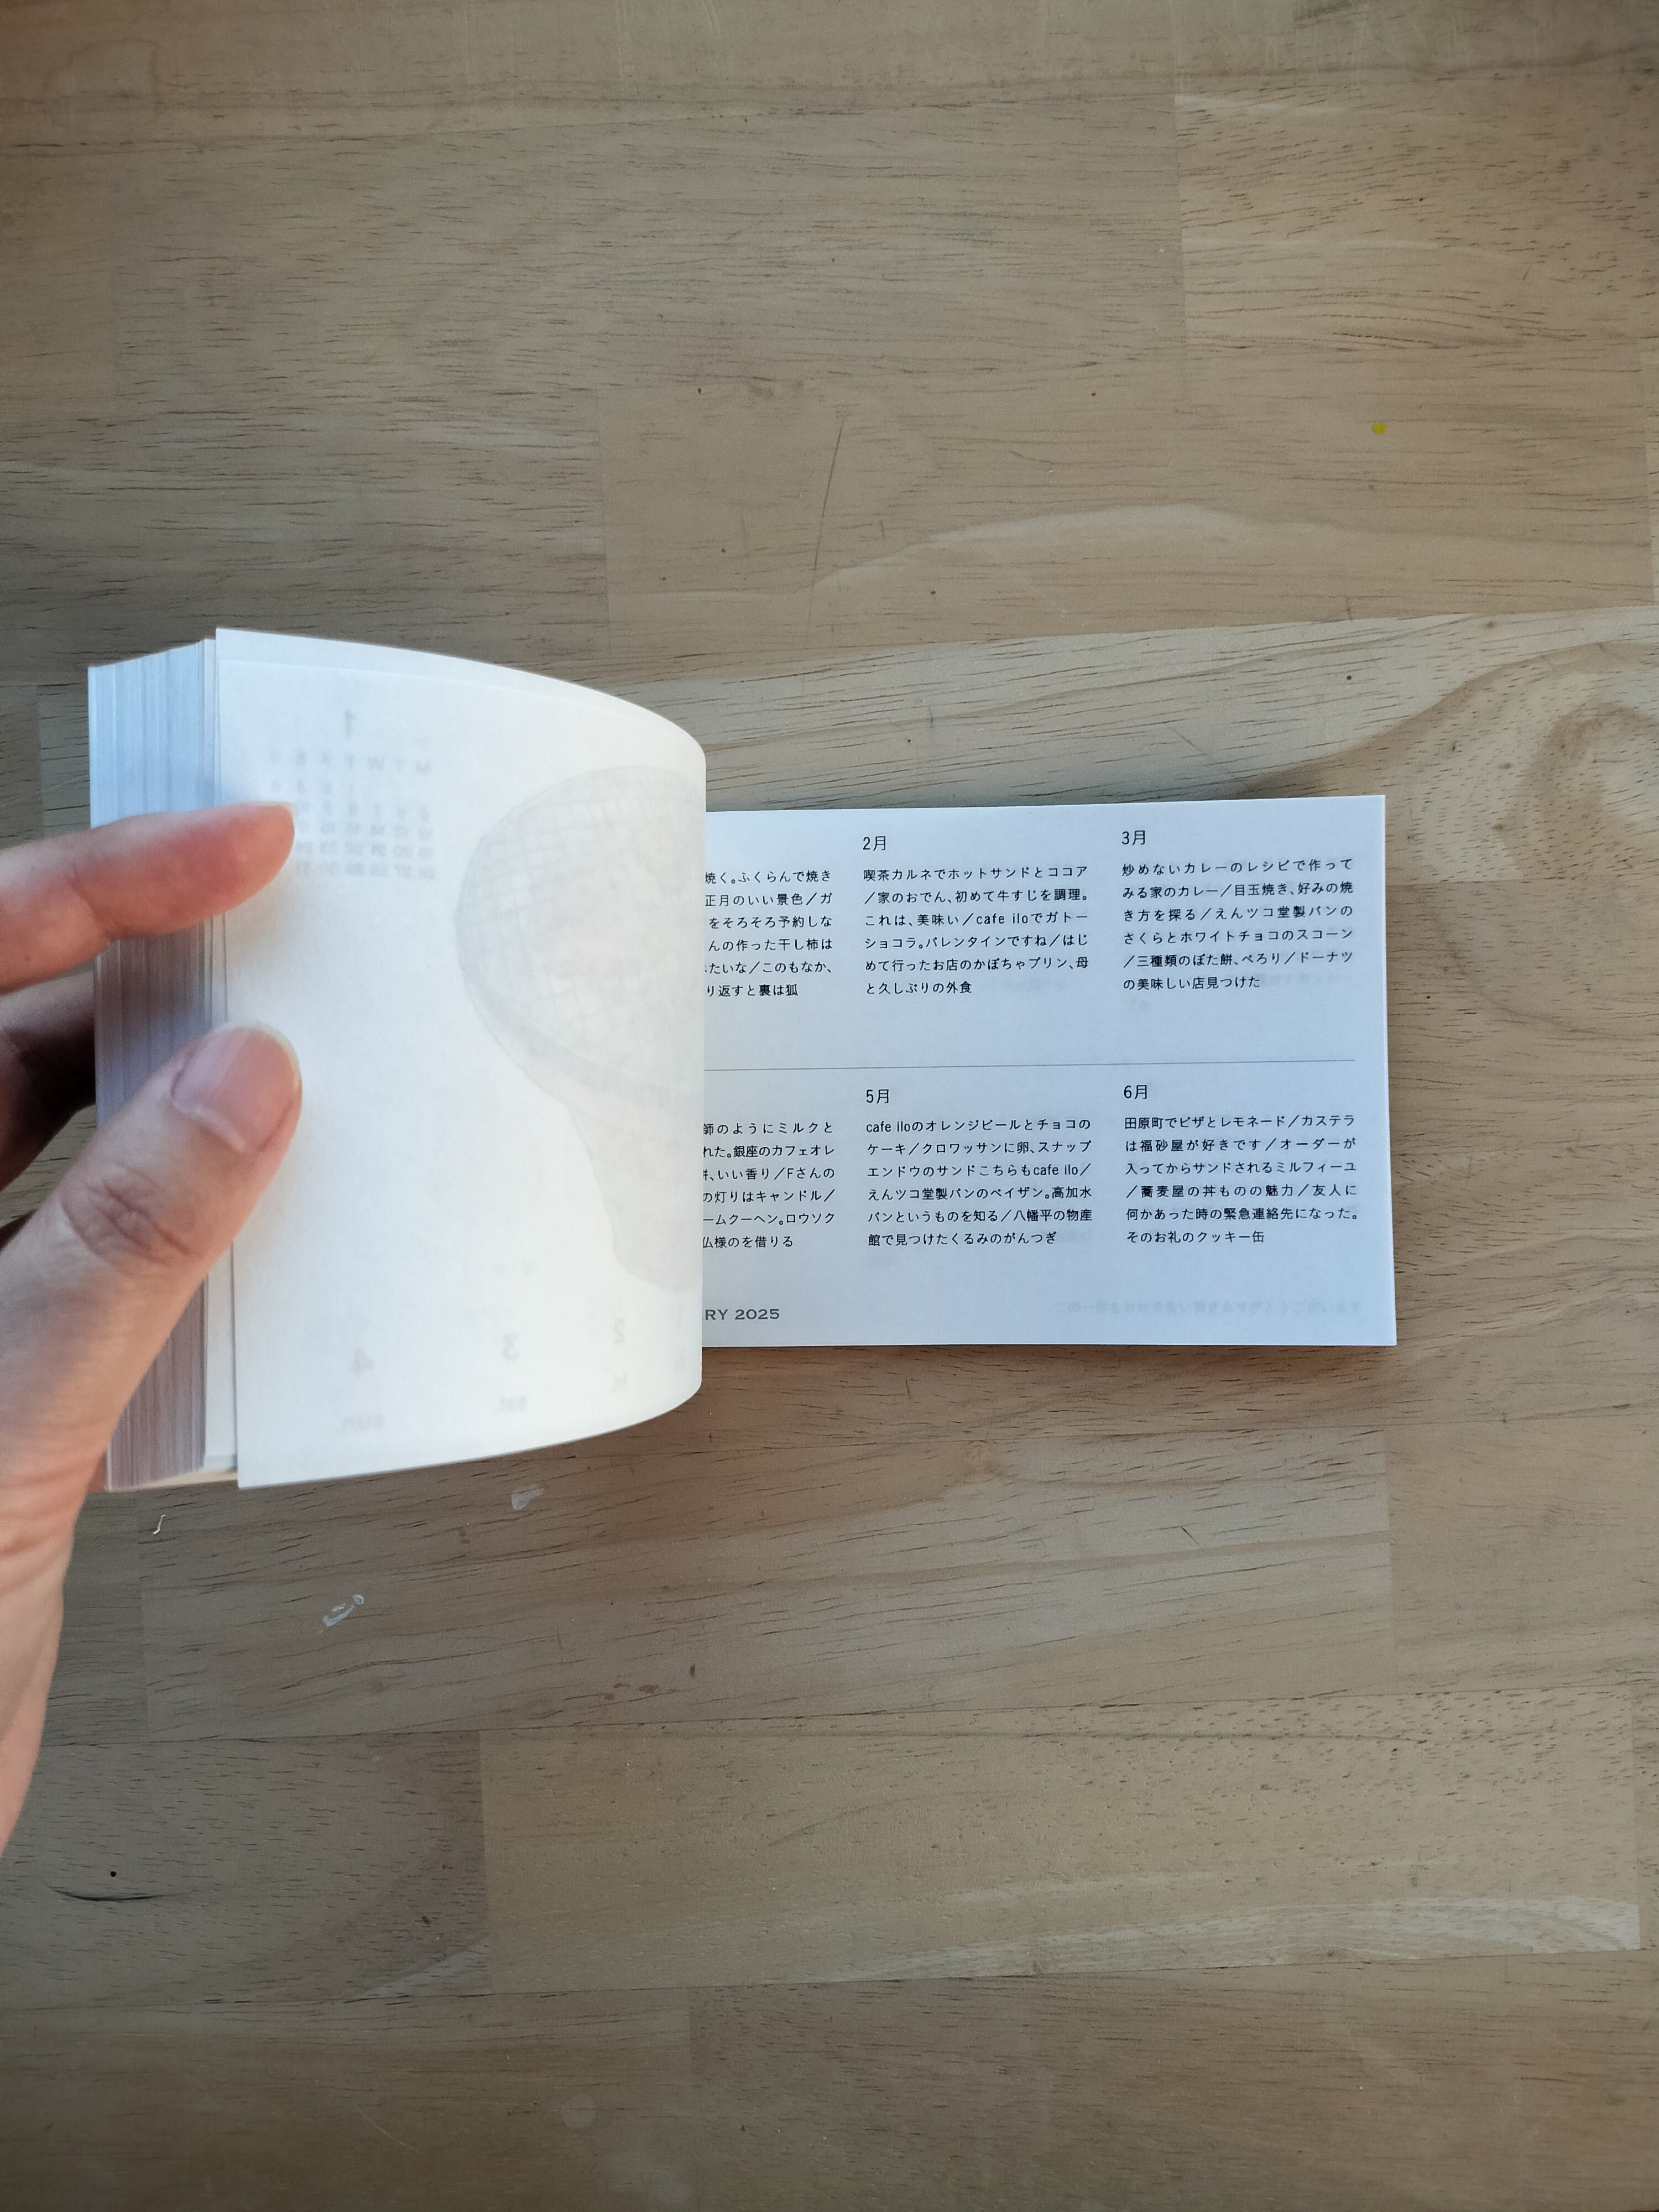 焼く。ふくらんで焼き
正月のいい景色／ガ
をそろそろ予約しな
んの作った干し柿は
たいな／このもなか、
り返すと裏は狐
2月
喫茶カルネでホットサンドとココア
／家のおでん、初めて牛すじを調理。
これは、美味い／cafe iloでガトー
ショコラ。バレンタインですね／はじ
めて行ったお店のかぼちゃプリン、母
と久しぶりの外食
3月
炒めないカレーのレシピで作って
みる家のカレー／目玉焼き、好みの焼
き方を探る／えんツコ堂製パンの
さくらとホワイトチョコのスコーン
／三種類のぼた餅、ぺろり／ドーナツ
の美味しい店見つけた
師のようにミルクと
れた。銀座のカフェオレ
、いい香り／Fさんの
の灯りはキャンドル／
ームクーヘン。ロウソク
仏様のを借りる
5月
cafe iloのオレンジピールとチョコの
ケーキ／クロワッサンに卵、スナップ
エンドウのサンドこちらもcafe ilo／
えんツコ堂製パンのペイザン。高加水
パンというものを知る／八幡平の物産
館で見つけたくるみのがんつぎ
6月
田原町でピザとレモネード／カステラ
は福砂屋が好きです／オーダーが
入ってからサンドされるミルフィーユ
／蕎麦屋の丼ものの魅力／友人に
何かあった時の緊急連絡先になった。
そのお礼のクッキー缶
RY 2025